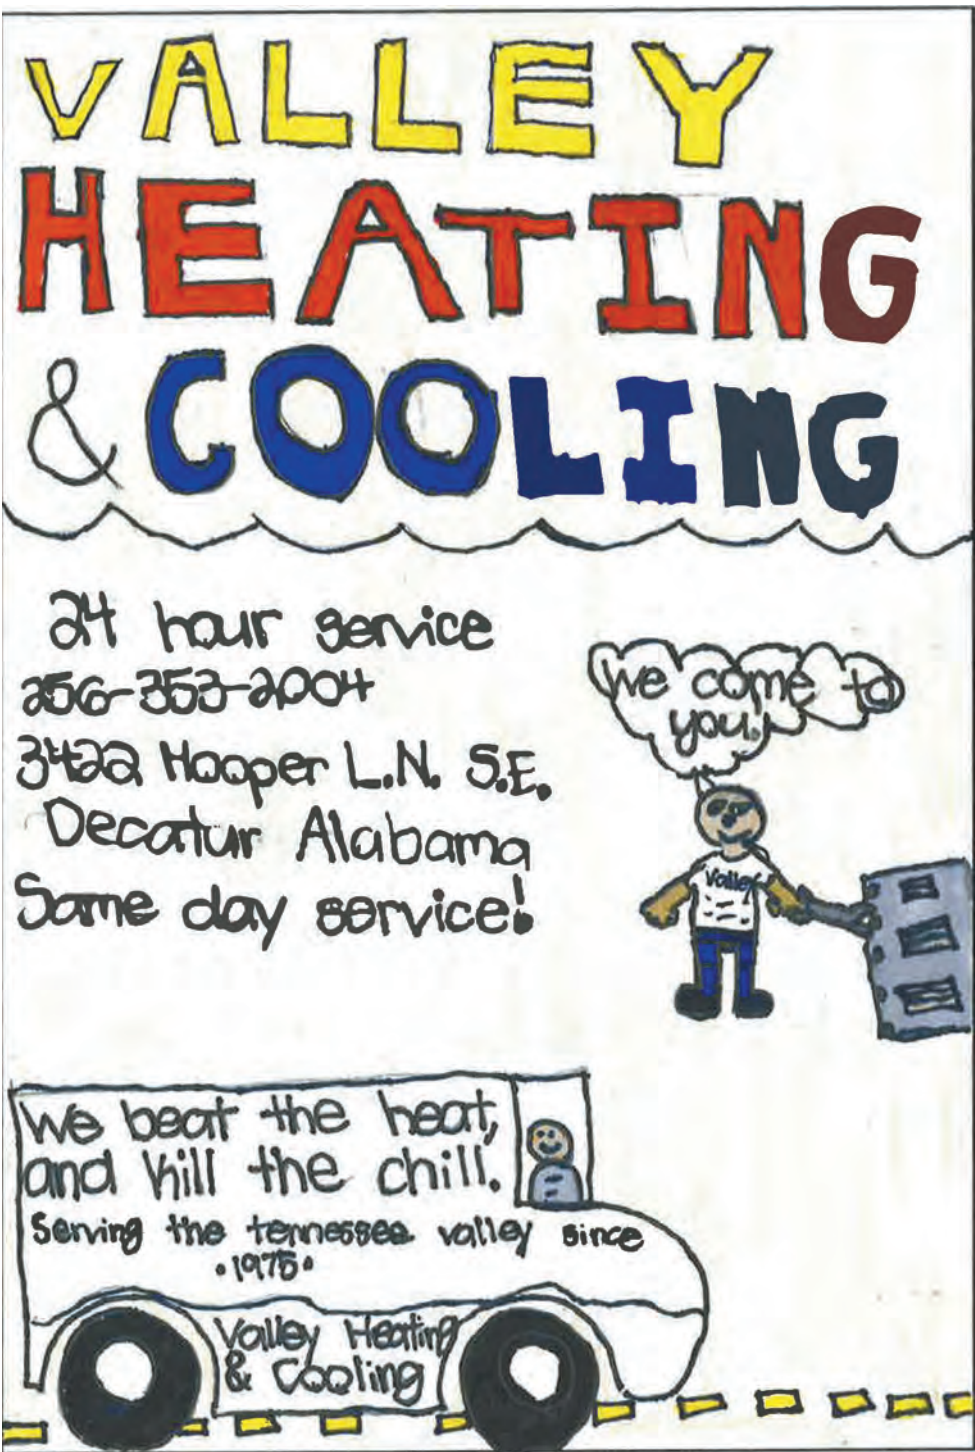 VALLEY
HEATING
& COOLING
24 hour service
256-353-2004
3422 Hooper L.N. S.E.
Decatur Alabama
Same day service!
We come to
you.
Valley
We beat the heat,
and kill the chill.
Serving the tennessee valley since
•1975•
Valley Heating
& Cooling